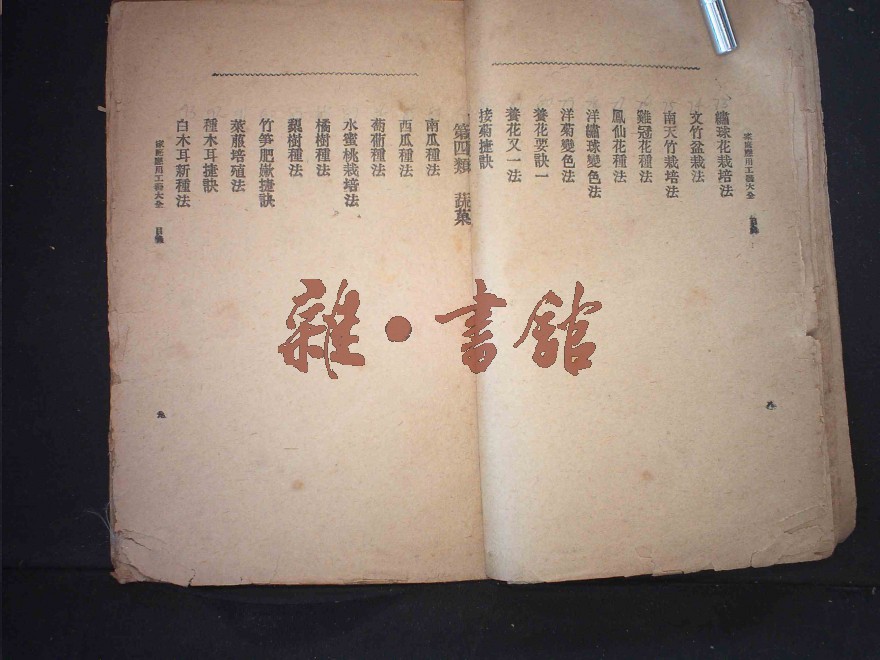 家庭應用工藝大全 目錄
繡球花栽培法
文竹盆栽法
南天竹栽培法
雞冠花種法
鳳仙花種法
洋繡球變色法
洋菊變色法
養花要訣一
養花又一法
接菊捷訣
八
第四類 蔬菓
南瓜種法
西瓜種法
葡萄種法
水蜜桃栽培法
橘樹種法
梨樹種法
竹笋肥嫩捷訣
萊菔培殖法
種木耳捷訣
白木耳新種法
家庭應用工藝大全 目錄
九
雜•書館